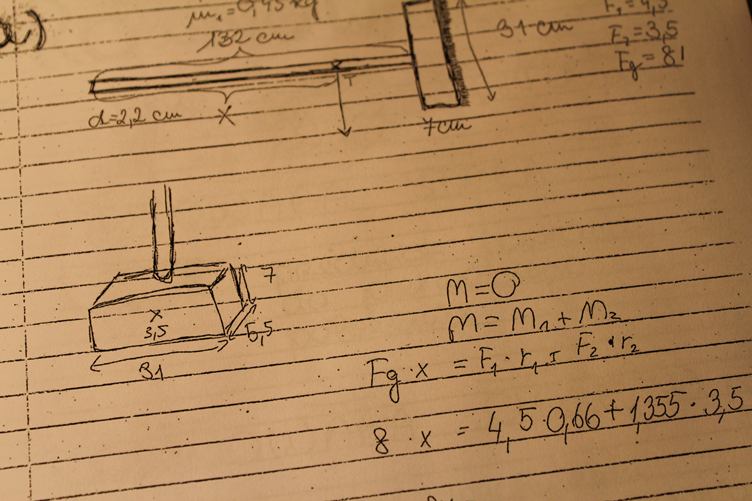 a)
m₁=0,45 kg
132 cm
31 cm
F₁=4,5
F₂=3,5
Fg=81
d=2,2 cm
x
7cm
7
x
3,5
6,5
31
M=O
M=M₁+M₂
Fg·x = F₁·r₁+ F₂·r₂
8·x = 4,5·0,66+1,355·3,5